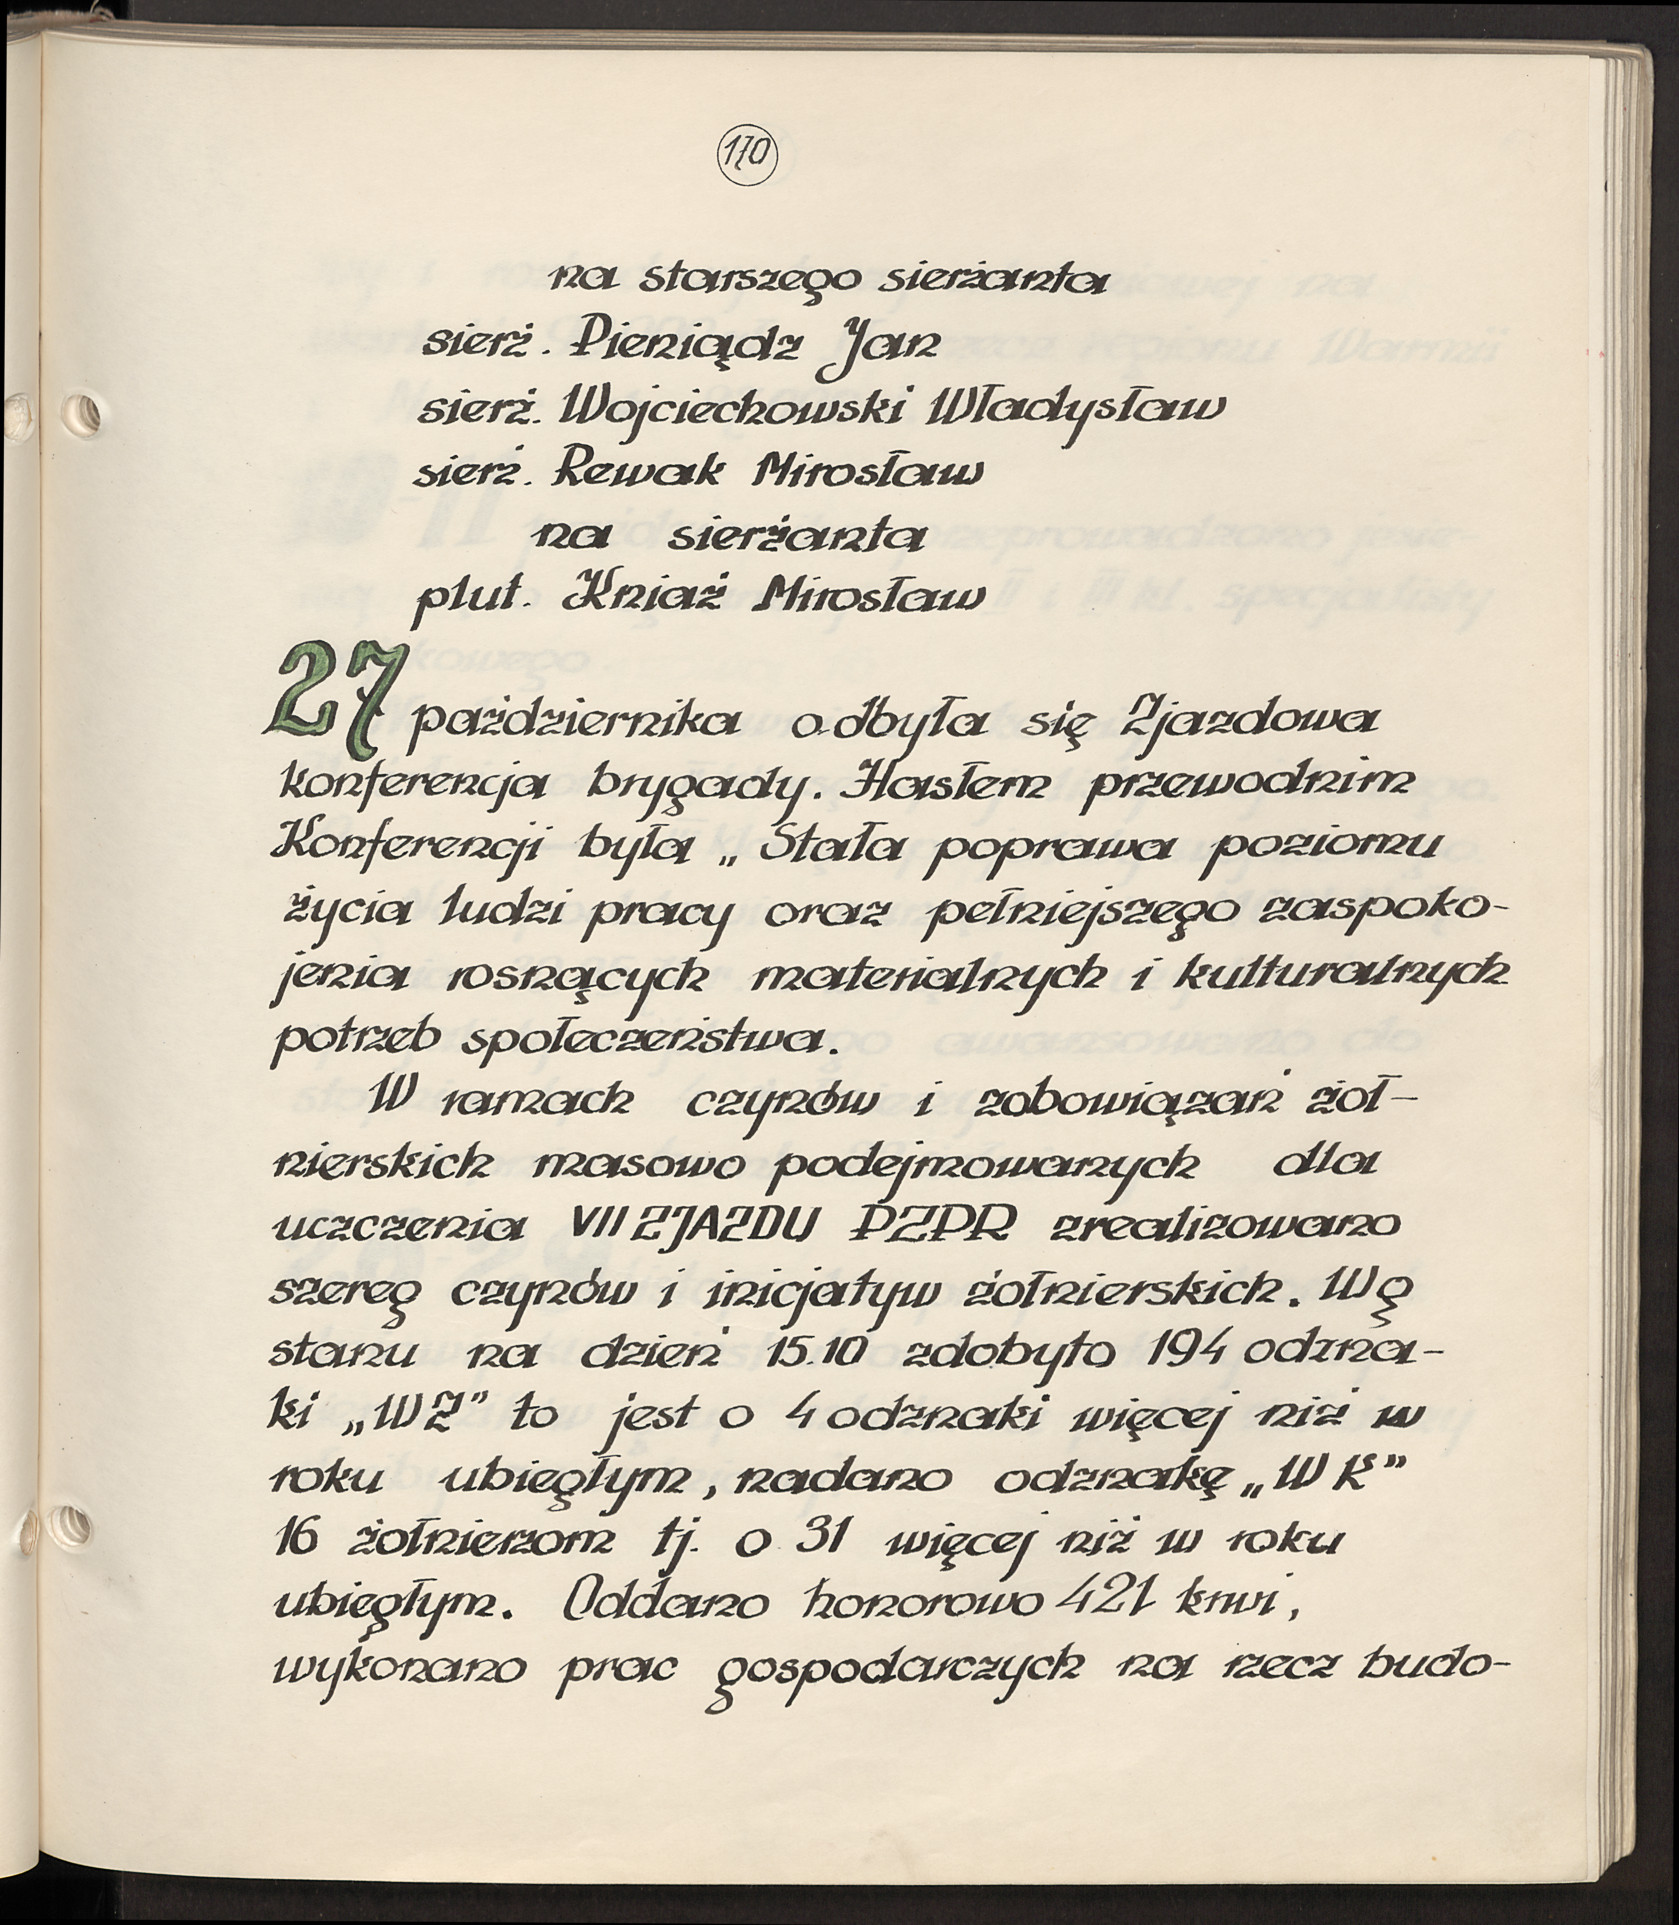 170
na starszego sierżanta
sierż. Pieniądz Jan
sierż. Wojciechowski Władysław
sierż. Rewak Mirosław
na sierżanta
plut. Kniaź Mirosław
27 października odbyła się Zjazdowa
konferencja brygady. Hasłem przewodnim
Konferencji była „Stała poprawa poziomu
życia ludzi pracy oraz pełniejszego zaspoko-
jenia rosnących materialnych i kulturalnych
potrzeb społeczeństwa.
W ramach czynów i zobowiązań żoł-
nierskich masowo podejmowanych dla
uczczenia VII ZJAZDU PZPR zrealizowano
szereg czynów i inicjatyw żołnierskich. Wg
stanu na dzień 15.10 zdobyto 194 odzna-
ki „WZ” to jest o 4 odznaki więcej niż w
roku ubiegłym, nadano odznakę „WK”
16 żołnierzom tj. o 31 więcej niż w roku
ubiegłym. Oddano honorowo 421 krwi,
wykonano prac gospodarczych na rzecz budo-